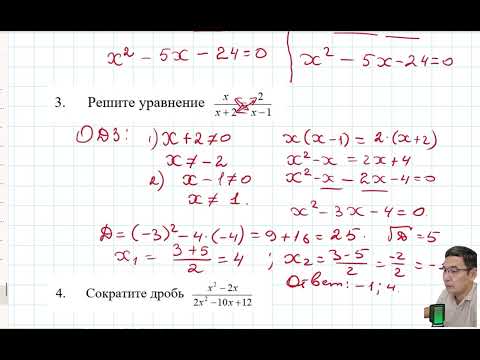 x² - 5x - 24 = 0
x² - 5x - 24 = 0
3. Решите уравнение x/(x+2) = 2/(x-1)
ОДЗ: 1) x + 2 ≠ 0
x ≠ -2
2) x - 1 ≠ 0
x ≠ 1.
x(x-1) = 2·(x+2)
x² - x = 2x + 4
x² - x - 2x - 4 = 0
x² - 3x - 4 = 0.
D = (-3)² - 4·(-4) = 9 + 16 = 25. √D = 5
x₁ = (3+5)/2 = 4 ; x₂ = (3-5)/2 = -2/2 = -
Ответ: -1; 4.
4. Сократите дробь (x² - 2x)/(2x² - 10x + 12)